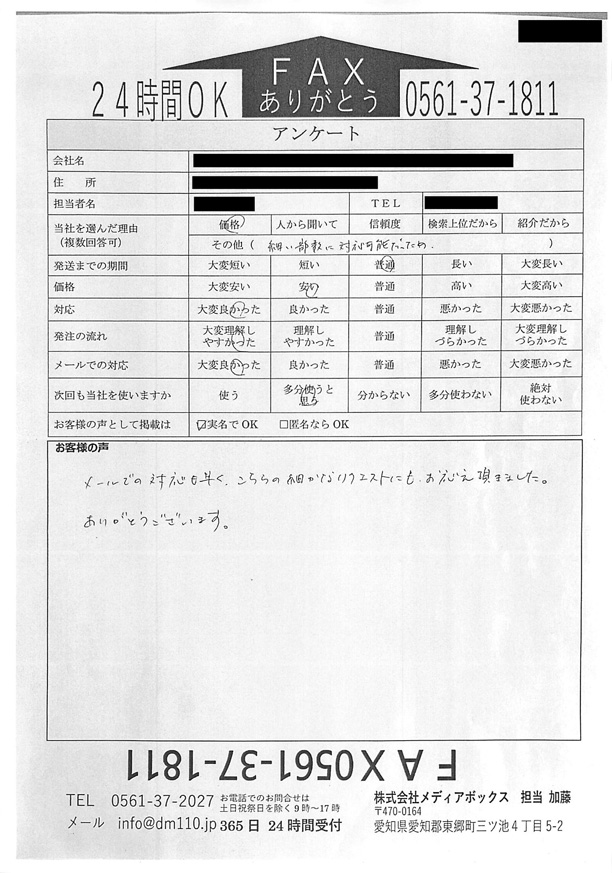 FAX
ありがとう
24時間OK 0561-37-1811
アンケート
会社名
住 所
担当者名 TEL
当社を選んだ理由
(複数回答可)
価格 人から聞いて 信頼度 検索上位だから 紹介だから
その他( 細い部数に対応可能だったため. )
発送までの期間 大変短い 短い 普通 長い 大変長い
価格 大変安い 安い 普通 高い 大変高い
対応 大変良かった 良かった 普通 悪かった 大変悪かった
発注の流れ 大変理解しやすかった 理解しやすかった 普通 理解しづらかった 大変理解しづらかった
メールでの対応 大変良かった 良かった 普通 悪かった 大変悪かった
次回も当社を使いますか 使う 多分使うと思う 分からない 多分使わない 絶対使わない
お客様の声として掲載は ☑実名でOK □匿名ならOK
お客様の声
メールでの対応も早く、こちらの細かなリクエストにも、お応え頂きました。
ありがとうございます。
FAX0561-37-1811
TEL 0561-37-2027 お電話でのお問合せは
土日祝祭日を除く9時〜17時
メール info@dm110.jp 365日 24時間受付
株式会社メディアボックス 担当 加藤
〒470-0164
愛知県愛知郡東郷町三ツ池4丁目5-2